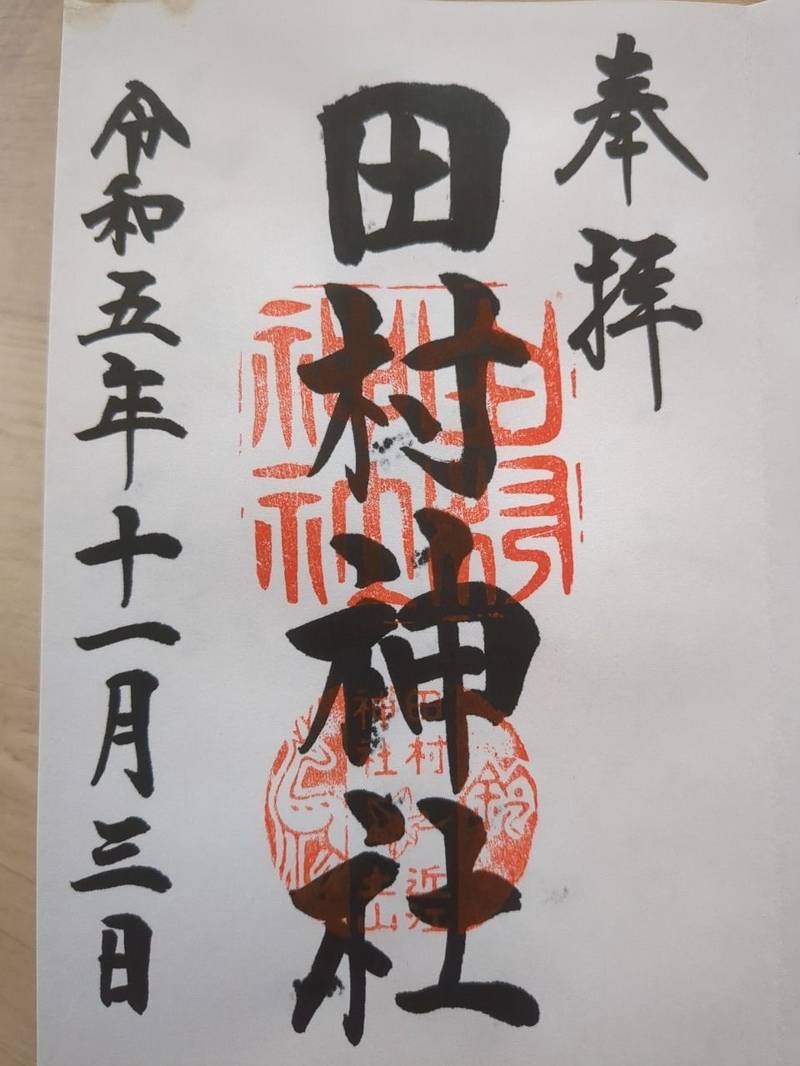 奉拝
田村神社
令和五年十一月三日
田村
神社
近江
土山
鈴